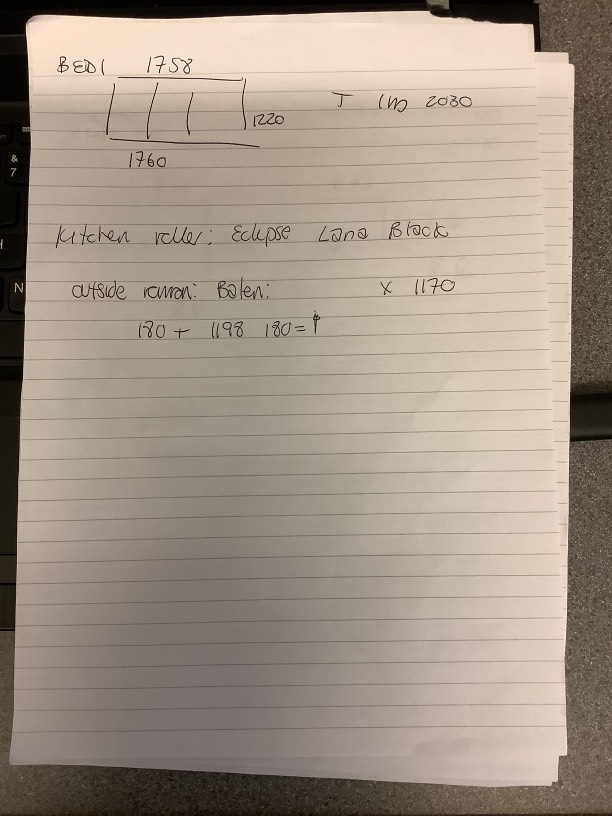 BED1 1758
1220
1760
2030
Kitchen roller: Eclipse Lana Black
outside roman: x 1170
180 + 1198 180 =